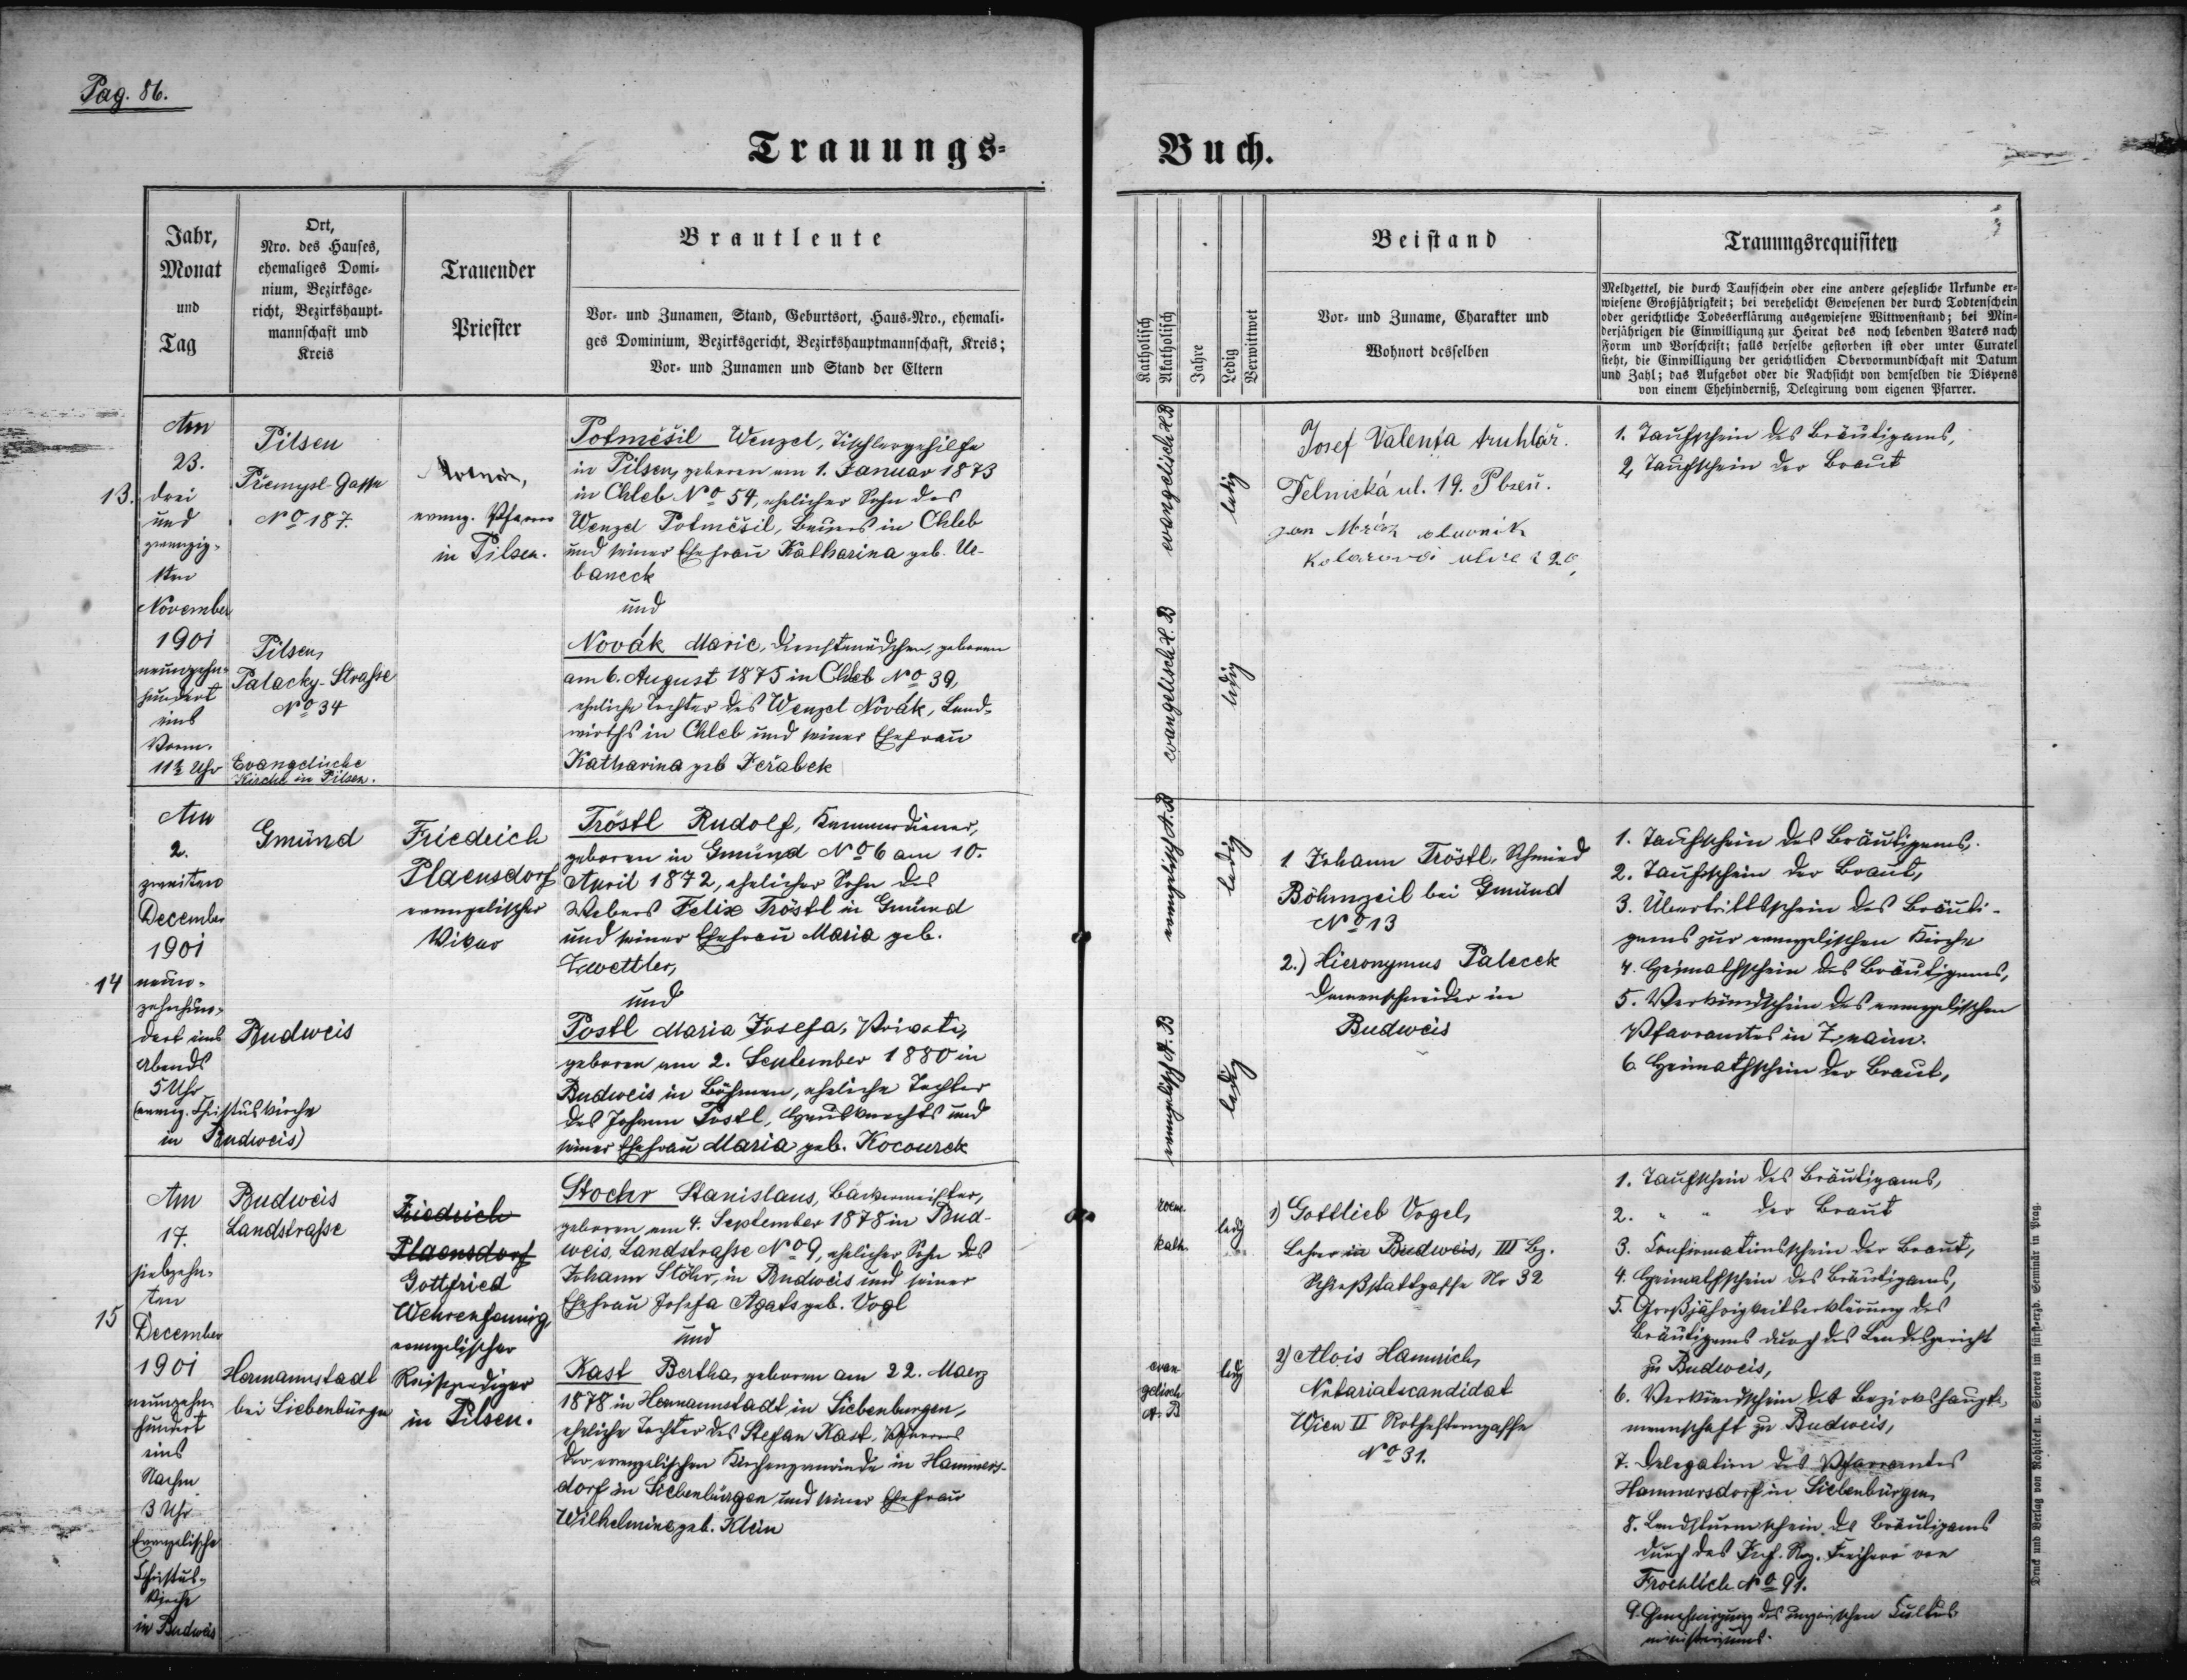 Pag. 86.
Trauungs-Buch.
Jahr,
Monat
und
Tag
Ort,
Nro. des Hauses,
ehemaliges Domi-
nium, Bezirksge-
richt, Bezirkshaupt-
mannschaft und
Kreis
Trauender
Priester
Brautleute
Vor- und Zunamen, Stand, Geburtsort, Haus-Nro., ehemali-
ges Dominium, Bezirksgericht, Bezirkshauptmannschaft, Kreis;
Vor- und Zunamen und Stand der Eltern
Katholisch
Akatholisch
Jahre
Ledig
Verwittwet
Beistand
Vor- und Zuname, Charakter und
Wohnort desselben
Trauungsrequisiten
Meldzettel, die durch Taufschein oder eine andere gesetzliche Urkunde er-
wiesene Großjährigkeit; bei verehelicht Gewesenen der durch Todtenschein
oder gerichtliche Todeserklärung ausgewiesene Wittwenstand; bei Min-
derjährigen die Einwilligung zur Heirat des noch lebenden Vaters nach
Form und Vorschrift; falls derselbe gestorben ist oder unter Curatel
steht, die Einwilligung der gerichtlichen Obervormundschaft mit Datum
und Zahl; das Aufgebot oder die Nachsicht von demselben die Dispens
von einem Ehehinderniß, Delegirung vom eigenen Pfarrer.
13.
Am
23.
drei
und
zwanzig-
sten
November
1901
neunzehn-
hundert
eins
Vorm.
11½ Uhr
Pilsen
Přemysl-Gasse
No 187
Pilsen,
Palacky-Strasse
No 34
Evangelische
Kirche in Pilsen.
evang. Pfarrer
in Pilsen.
Potměšil Wenzel, Tischlergehilfe
in Pilsen, geboren am 1. Januar 1873
in Chleb No 54, ehelicher Sohn des
Wenzel Potměšil, Bauers in Chleb
und seiner Ehefrau Katharina geb. Ur-
baneck
und
Novák Marie, Dienstmädchen, geboren
am 6. August 1875 in Chleb No 39,
eheliche Tochter des Wenzel Novák, Land-
wirths in Chleb und seiner Ehefrau
Katharina geb Jeřabek
evangelisch H.B
evangelisch H.B
ledig
ledig
Josef Valenta truhlář.
Dělnická ul. 19. Plzeň.
Jan Mráz
Kolarova ulice č 20,
1. Taufschein des Bräutigams,
2, Taufschein der Braut
14
Am
2.
zweiten
December
1901
neun-
zehnhun-
dert eins
Abends
5 Uhr
(evang. Christuskirche
in Budweis)
Gmünd
Budweis
Friedrich
Plaensdorf
evangelischer
Vikar
Tröstl Rudolf, Kammerdiener,
geboren in Gmünd No 6 am 10.
April 1872, ehelicher Sohn des
Webers Felix Tröstl in Gmünd
und seiner Ehefrau Maria geb.
Zwettler,
und
Postl Maria Josefa, Private,
geboren am 2. September 1880 in
Budweis in Böhmen, eheliche Tochter
des Johann Postl, Hausknechts und
seiner Ehefrau Maria geb. Kocourek
evangelisch A.B
evangelisch A.B
ledig
ledig
1 Johann Tröstl, Schmied
Böhmzeil bei Gmünd
No 13
2.) Hieronymus Palecek
Damenschneider in
Budweis
1. Taufschein des Bräutigams.
2. Taufschein der Braut,
3. Übertrittsschein des Bräuti-
gams zur evangelischen Kirche
4. Heimathschein des Bräutigams,
5. Verkündschein des evangelischen
Pfarramtes in Znaim.
6. Heimathschein der Braut,
15
Am
17.
siebzehn-
ten
December
1901
neunzehn-
hundert
eins
Nachm.
3 Uhr
Evangelische
Christus-
kirche
in Budweis
Budweis
Landstrasse
Hermannstadt
bei Siebenbürgen
Friedrich
Plaensdorf
Gottfried
Wehrenfennig
evangelischer
Reiseprediger
in Pilsen.
Stochr Stanislaus, Bäckermeister,
geboren am 4. September 1878 in Bud-
weis, Landstrasse No 9, ehelicher Sohn des
Johann Stöhr, in Budweis und seiner
Ehefrau Josefa Agats geb. Vogl
und
Kast Bertha, geboren am 22. Maerz
1878 in Hermannstadt in Siebenburgen,
eheliche Tochter des Stefan Kast, Pfarrers
der evangelischen Kirchengemeinde in Hammers-
dorf in Siebenbürgen und seiner Ehefrau
Wilhelmine geb. Klein
roem.
kath.
evan-
gelisch
A.B
ledig
ledig
1) Gottlieb Vogel,
Lehrer in Budweis, III Bz.
Schießstattgasse Nr 32
2) Alois Hamrich,
Notariatscandidat
Wien II Rothesterngasse
No 31.
1. Taufschein des Bräutigams,
2. " " der Braut
3. Confirmationsschein der Braut,
4. Heimathschein des Bräutigams,
5. Großjährigkeitserklärung des
Bräutigams durch das Landesgericht
zu Budweis,
6. Verkündschein der Bezirkshaupt-
mannschaft zu Budweis,
7. Delegation des Pfarramtes
Hammersdorf in Siebenbürgen,
8. Landsturmschein des Bräutigams
durch das Inf. Reg. Freiherr von
Froehlich No 91.
9. Genehmigung des ungarischen Cultus-
ministeriums.
Druck und Verlag von Rohliček u. Sievers im fürsterzb. Seminär in Prag.